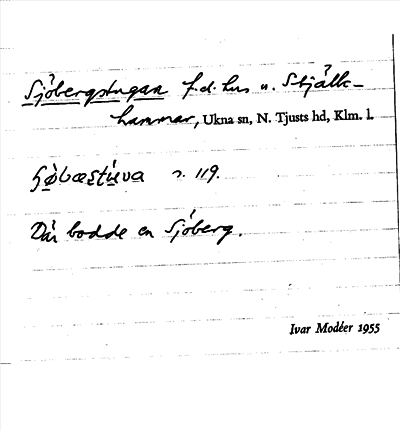 Sjöbergstugan f.d. hus u. Stjälk-
hammar, Ukna sn, N. Tjusts hd, Klm. l.
s. 119.
Där bodde en Sjöberg.
Ivar Modéer 1955